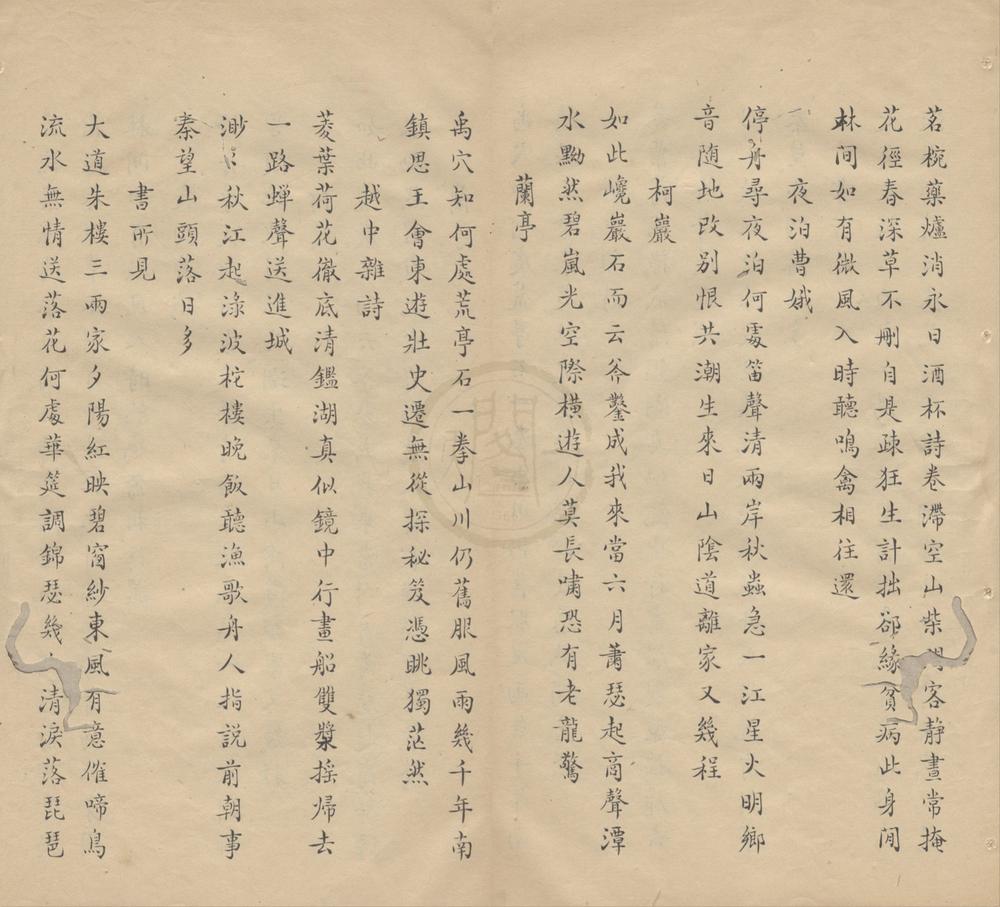 茗椀藥爐消永日酒杯詩卷滯空山柴門客静晝常掩
花徑春深草不刪自是疎狂生計拙郤緣貧病此身閒
林間如有微風入時聽鳴禽相往還
夜泊曹娥
停舟尋夜泊何處笛聲清兩岸秋蟲急一江星火明鄉
音随地改别恨共潮生來日山陰道離家又幾程
柯巖
如此巉巖石而云斧鑿成我來當六月蕭瑟起商聲潭
水黝然碧嵐光空際橫遊人莫長嘯恐有老龍驚
蘭亭
禹穴知何處荒亭石一拳山川仍舊服風雨幾千年南
鎮思王會東遊壯史遷無從探秘笈憑眺獨茫然
越中雜詩
菱葉荷花徹底清鑑湖真似鏡中行畫船雙槳摇歸去
一路蟬聲送進城
渺〻秋江起渌波柁樓晚飯聽漁歌舟人指説前朝事
秦望山頭落日多
書所見
大道朱樓三兩家夕陽紅映碧窗紗東風有意催啼鳥
流水無情送落花何處華筵調錦瑟幾清淚落琵琶